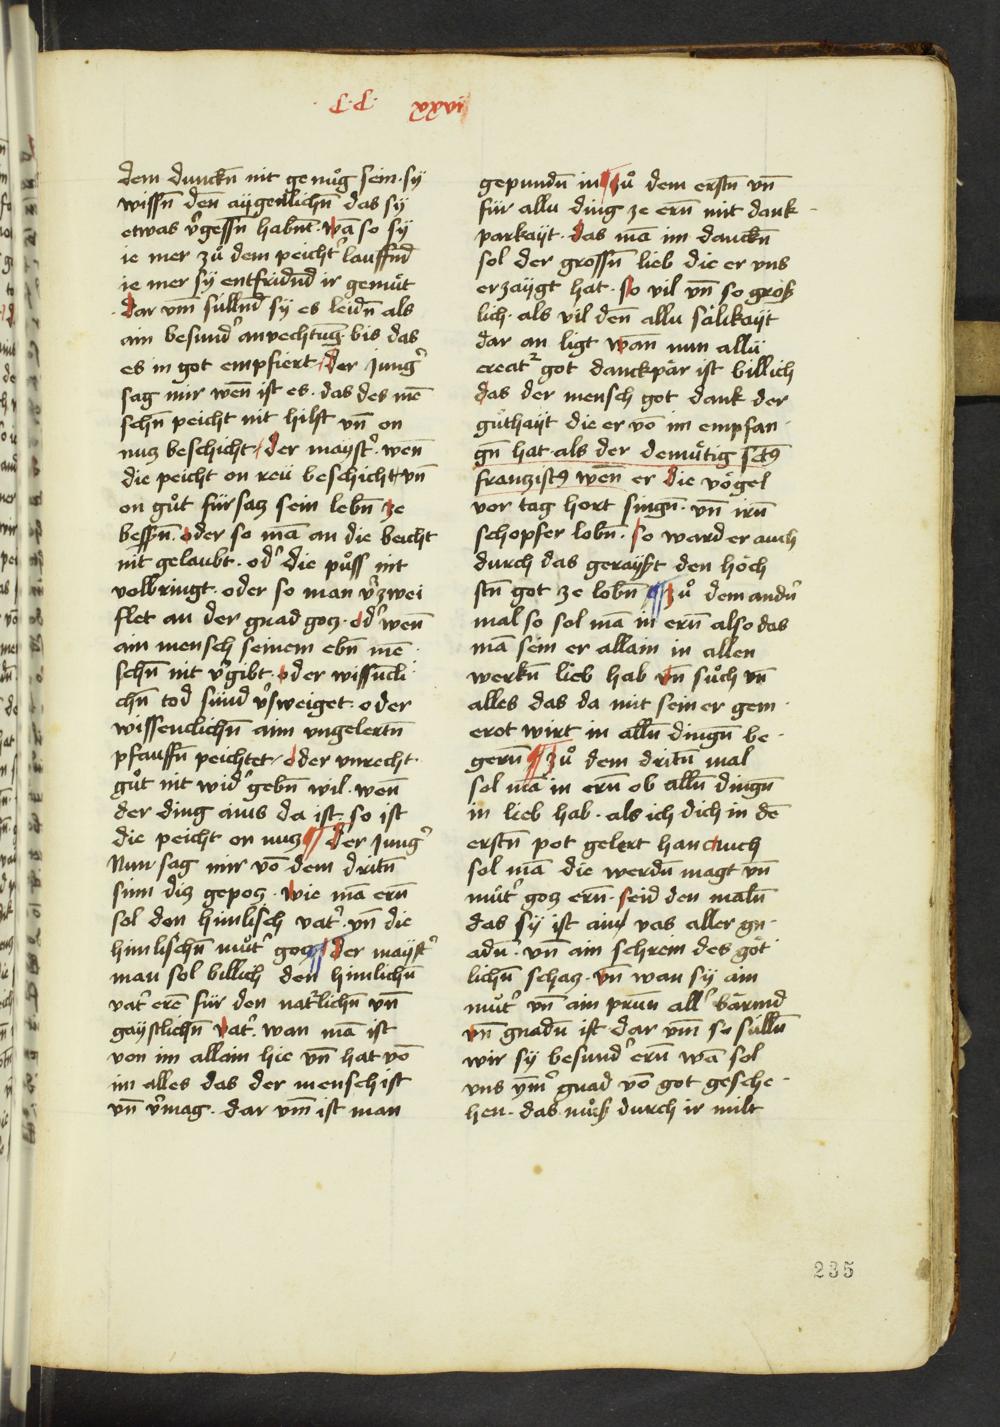 ·C·C· xxxvi
dem dunckn̄ nit genuͦg sein · sÿ
wissn̄ den aÿgenlichn̄ das sÿ
etwas v̉gessn̄ habnt · wā so sÿ
ie mer zuͦ dem peicht̉ lauffnd
ie mer sÿ entfridnd ir gemuͤt
· Dar vm̄ süllnd sÿ es leidn̄ als
ain besund̉ anvechtuḡ · bis das
es in got empfiert / der Jung̉
sag mir wen̄ ist es · das des mē
schn̄ peicht nit hilft vn̄ on
nucz beschicht / der mayst̉ · wen̄
die peicht on reü beschicht / vn̄
on guͦt fürsacz sein lebn̄ ze
bessn̄ · oder so mā an die beicht
nit gelaubt · od̉ die puͦss nit
volbringt · oder so man v̉zwei
flet an der gnad gocz · od̉ wen̄
ain mensch seinem ebn̄ mē
schn̄ nit v̉gibt · oder wissncli
chn̄ tod sünd v̉sweiget · oder
wissenclichn̄ aim vngelertn̄
pfaffn̄ peichtet / oder vnrecht
guͦt nit wid̉ gebn̄ wil · wen̄
der ding ains da ist · so ist
die peicht on nucz ¶ der Jung̉
Nun sag mir vō dem dritn̄
sinn dicz gepocz · wie mā ern̄
sol den himlisch vat̉ · vn̄ die
himlischn̄ muͦt̉ gocz ¶ der mayst̉
man sol billich den himlichn̄
vat̉ erē für den nat̉lichn̄ vn̄
gaystlichn̄ vat̉ · wan mā ist
von im allain hie vn̄ hat vō
im alles das der mensch ist
vn̄ v̉mag · dar vm̄ ist man
gepundn̄ in ¶ Zuͦ dem erstn̄ vn̄
für allu ding ze ern̄ mit dank
parkaÿt · das mā im danckn̄
sol der grossn̄ lieb die er vns
erzaÿgt hat · so vil vn̄ so groß
lich · als vil den̄ allu sälikaÿt
dar an ligt wan nun allü
creat̉ got danckpär ist billich
das der mensch got dank der
guͤthaÿt die er vō im empfan
gn̄ hat · als der demuͤtig sctꝯ
franzistꝯ wen̄ er die vögel
vor tag hort singn̄ · vn̄ irn̄
schopfer lobn̄ · so ward er auch
durch das geraÿßt den höch
stn̄ got ze lobn̄ ¶ Zuͦ dem andn̉
mal so sol mā in ern̄ also das
mā sein er allain in allen
werkn̄ lieb hab vn̄ suͦch vn̄
alles das da mit sein er gem
erot wirt in alln̄ dingn̄ be
gern̄ ¶ Zuͦ dem dritn̄ mal
sol mā in ern̄ ob alln̄ dingn̄
in lieb hab · als ich dich in dē
erstn̄ pot gelert han auch
sol mā die werdn̄ magt vn̄
muͦt̉ gocz ern̄ · seid den maln̄
das sÿ ist ain vas aller gn
adn̄ · vn̄ ain schrein des göt
lichn̄ schacz · vn̄ wan sÿ ain
muͦt̉ vn̄ ain prun all̉ bärmd
vn̄ gnadn̄ ist · dar vm̄ so sülln̄
wir sÿ besund̉ ern̄ wā sol
vns ym̄̉ gnad vō got gesche
hen · das muͦß durch ir milt
235